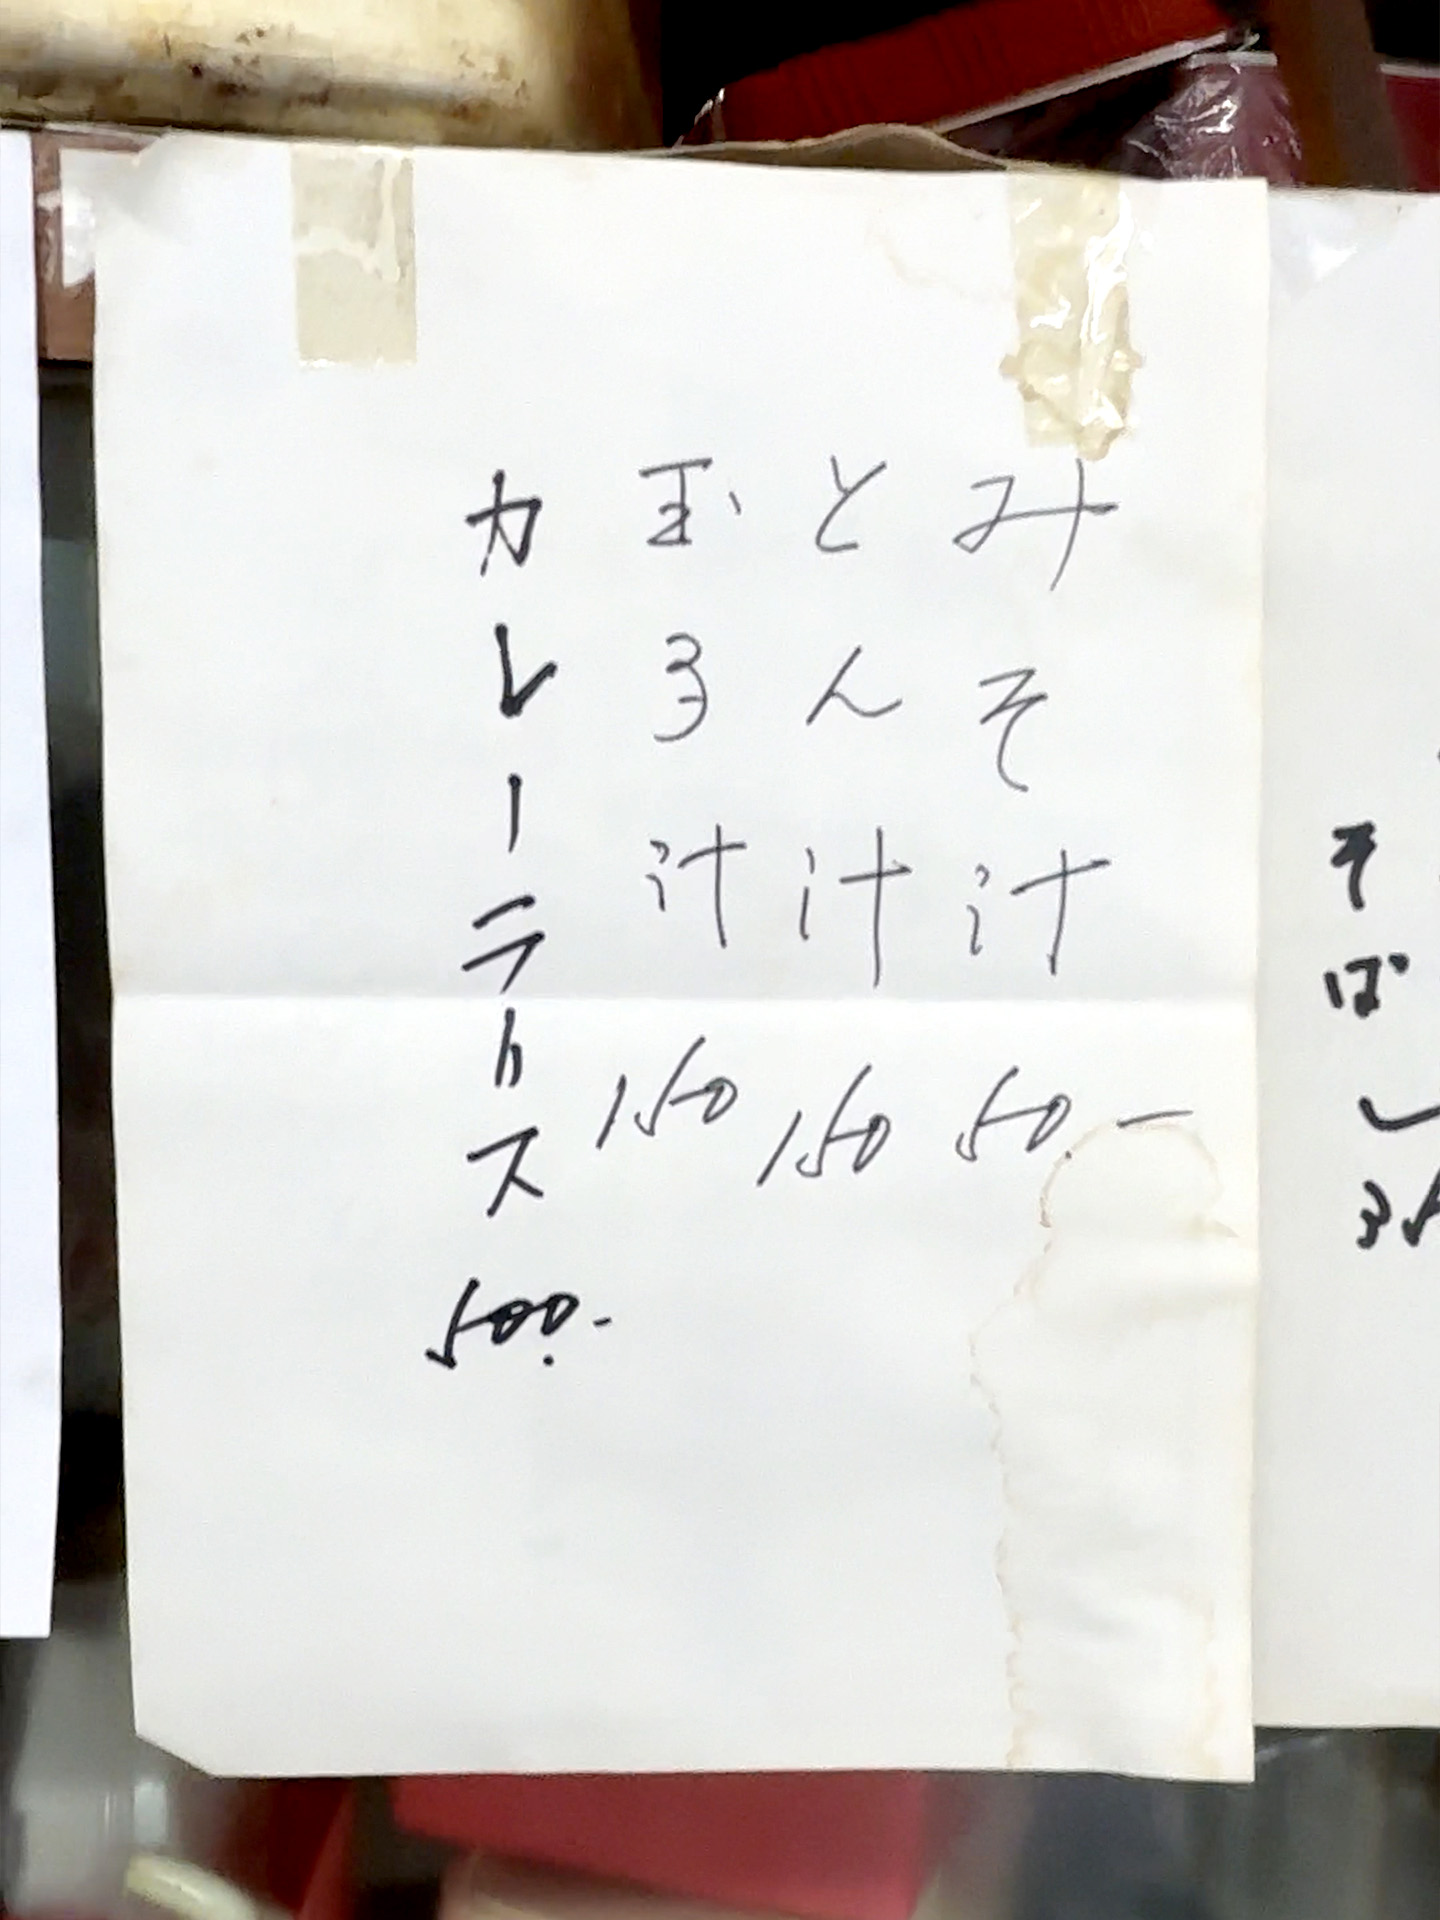 そば
みそ汁 50-
とん汁 150
玉子汁 150
カレーライス 500.-